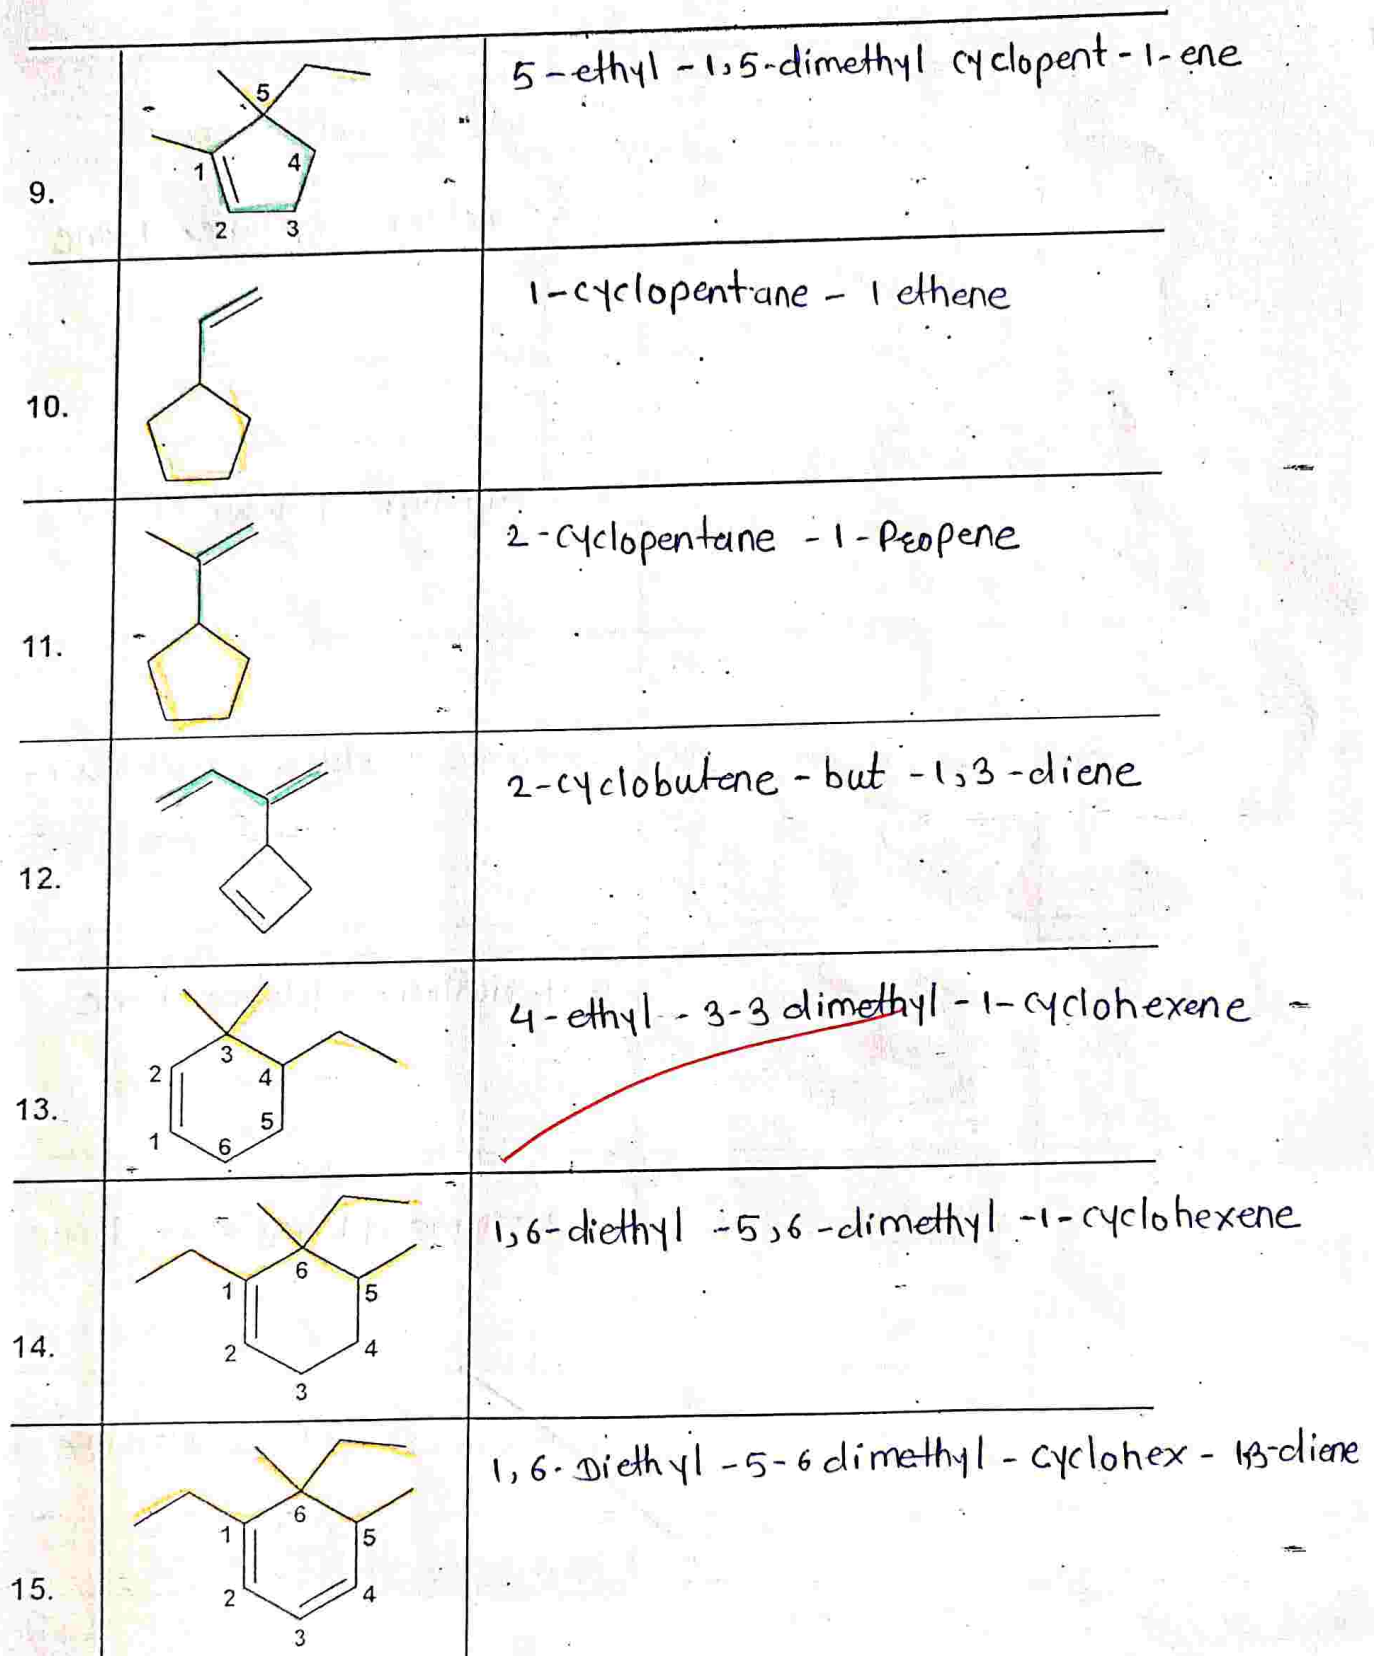 5-ethyl-1,5-dimethyl cyclopent-1-ene
5
1
4
2
3
9.
1-cyclopentane - 1 ethene
10.
2-cyclopentane -1-Propene
11.
2-cyclobutene-but-1,3-diene
12.
4-ethyl-3-3 dimethyl-1-cyclohexene
3
2
4
5
1
6
13.
1,6-diethyl-5,6-dimethyl-1-cyclohexene
6
1
5
2
4
3
14.
1,6-Diethyl-5-6 dimethyl-cyclohex-1,3-diene
6
1
5
2
4
3
15.